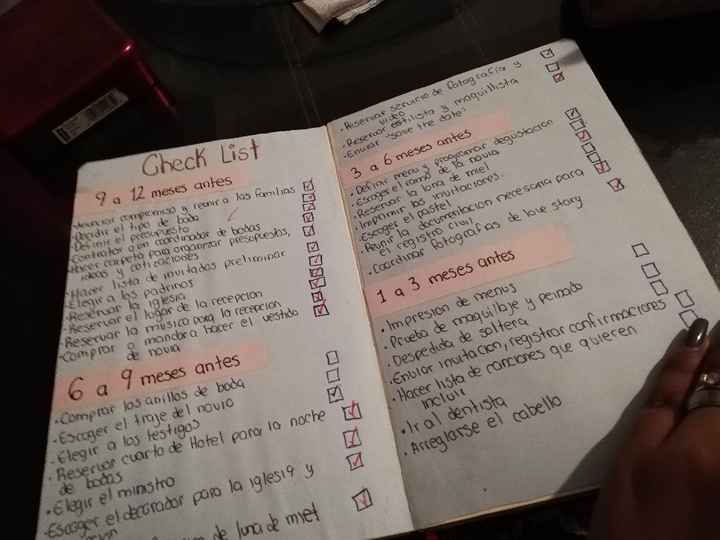 Check List
9 a 12 meses antes
·Anunciar compromiso y reunir a las familias
·Decidir el tipo de boda
·Definir el presupuesto
·Contratar a un coordinador de bodas
·Hacer carpeta para organizar presupuestos,
ideas y cotizaciones
·Hacer lista de invitados preliminar
·Elegir a los padrinos
·Reservar la iglesia
·Reservar el lugar de la recepcion
·Reservar la música para la recepcion
·Comprar o mandara hacer el vestido
de novia
6 a 9 meses antes
·Comprar los anillos de boda
·Escoger el traje del novio
·Elegir a los testigos
·Reservar cuarto de Hotel para la noche
de bodas
·Elegir el ministro
·Escoger el decorador para la iglesia y
de luna de miel
·Reservar servicio de fotografía y
video
·Reservar estilista y maquillista
·Enviar "save the date"
3 a 6 meses antes
·Definir menu y programar degustacion
·Escoger el ramo de la novia
·Reservar la luna de miel
·Imprimir las invitaciones.
·Escoger el pastel
·Reunir la documentacion necesaria para
el registro civil
·Coordinar fotografias de love story
1 a 3 meses antes
·Impresion de menus
·Prueba de maquillaje y peinado
·Despedida de soltera
·Enviar invitacion, registrar confirmaciones
·Hacer lista de canciones que quieren
incluir
·Ir al dentista
·Arreglarse el cabello